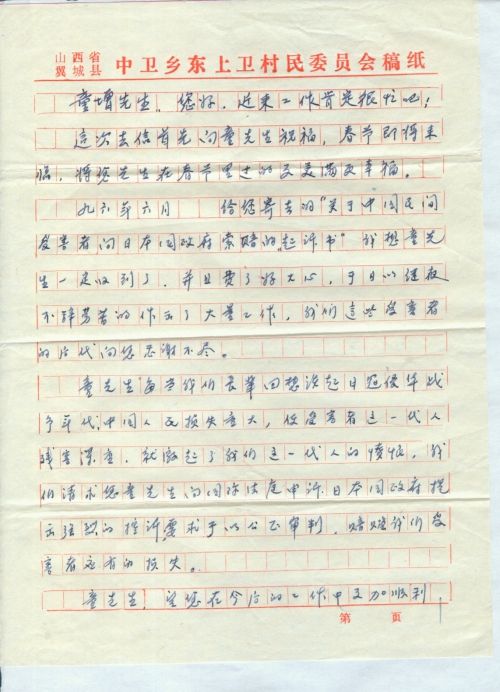 山西省
翼城县 中卫乡东上卫村民委员会稿纸
童增先生，您好，近来工作肯定很忙吧！
这次去信首先向童先生祝福，春节即将来
临，将祝先生在春节里过的又美满又幸福。
九六年六月 给您寄去的"关于中国民间
受害者向日本国政府索赔的"起诉书"我想童先
生一定收到了，并且费了好大心，于日以继夜
不辞劳苦的作了大量工作，我们这些受害者
的后代向您感谢不尽。
童先生每当我们长辈回想谈起日冦侵华战
争年代，中国人民损失重大，使受害者这一代人
残害深重，就激起了我们这一代人的愤恨，我
们请求您童先生向国际法庭申诉，日本国政府提
出强烈的控诉，要求予以公正审判，赔赔我们受
害者应有的损失。
童先生，望您在今后的工作中更加顺利，
第 页